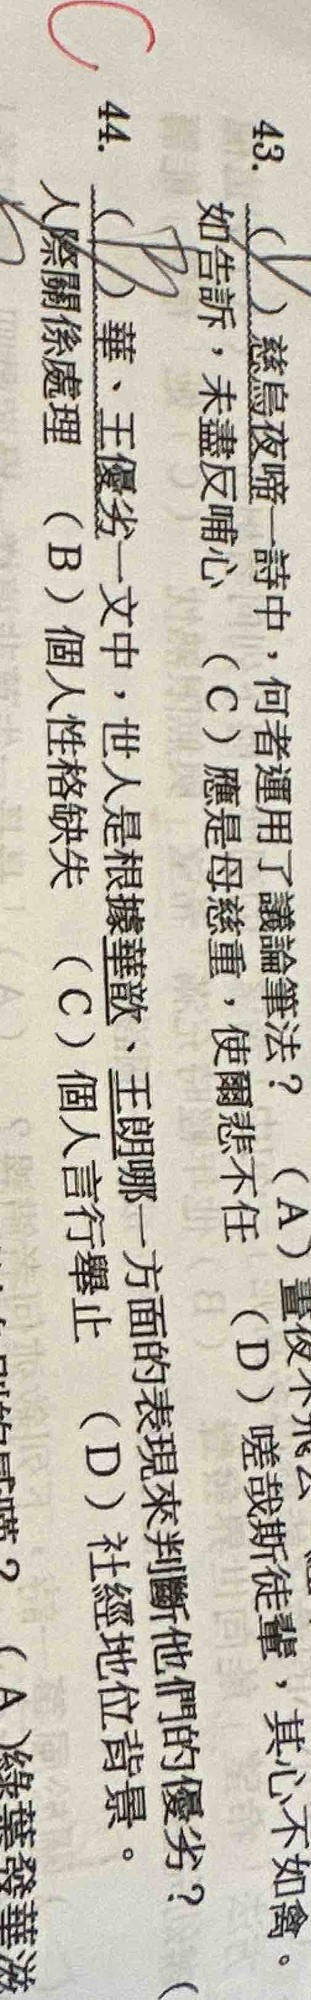 43. ( ) 慈烏夜啼一詩中，何者運用了議論筆法？ (A) 晝夜不飛去
如告訴，未盡反哺心 (C) 應是母慈重，使爾悲不任 (D) 嗟哉斯徒輩，其心不如禽。
44. (B) 華、王優劣一文中，世人是根據華歆、王朗哪一方面的表現來判斷他們的優劣？ (
人際關係處理 (B) 個人性格缺失 (C) 個人言行舉止 (D) 社經地位背景。
C
？ (A) 綠葉發華滋